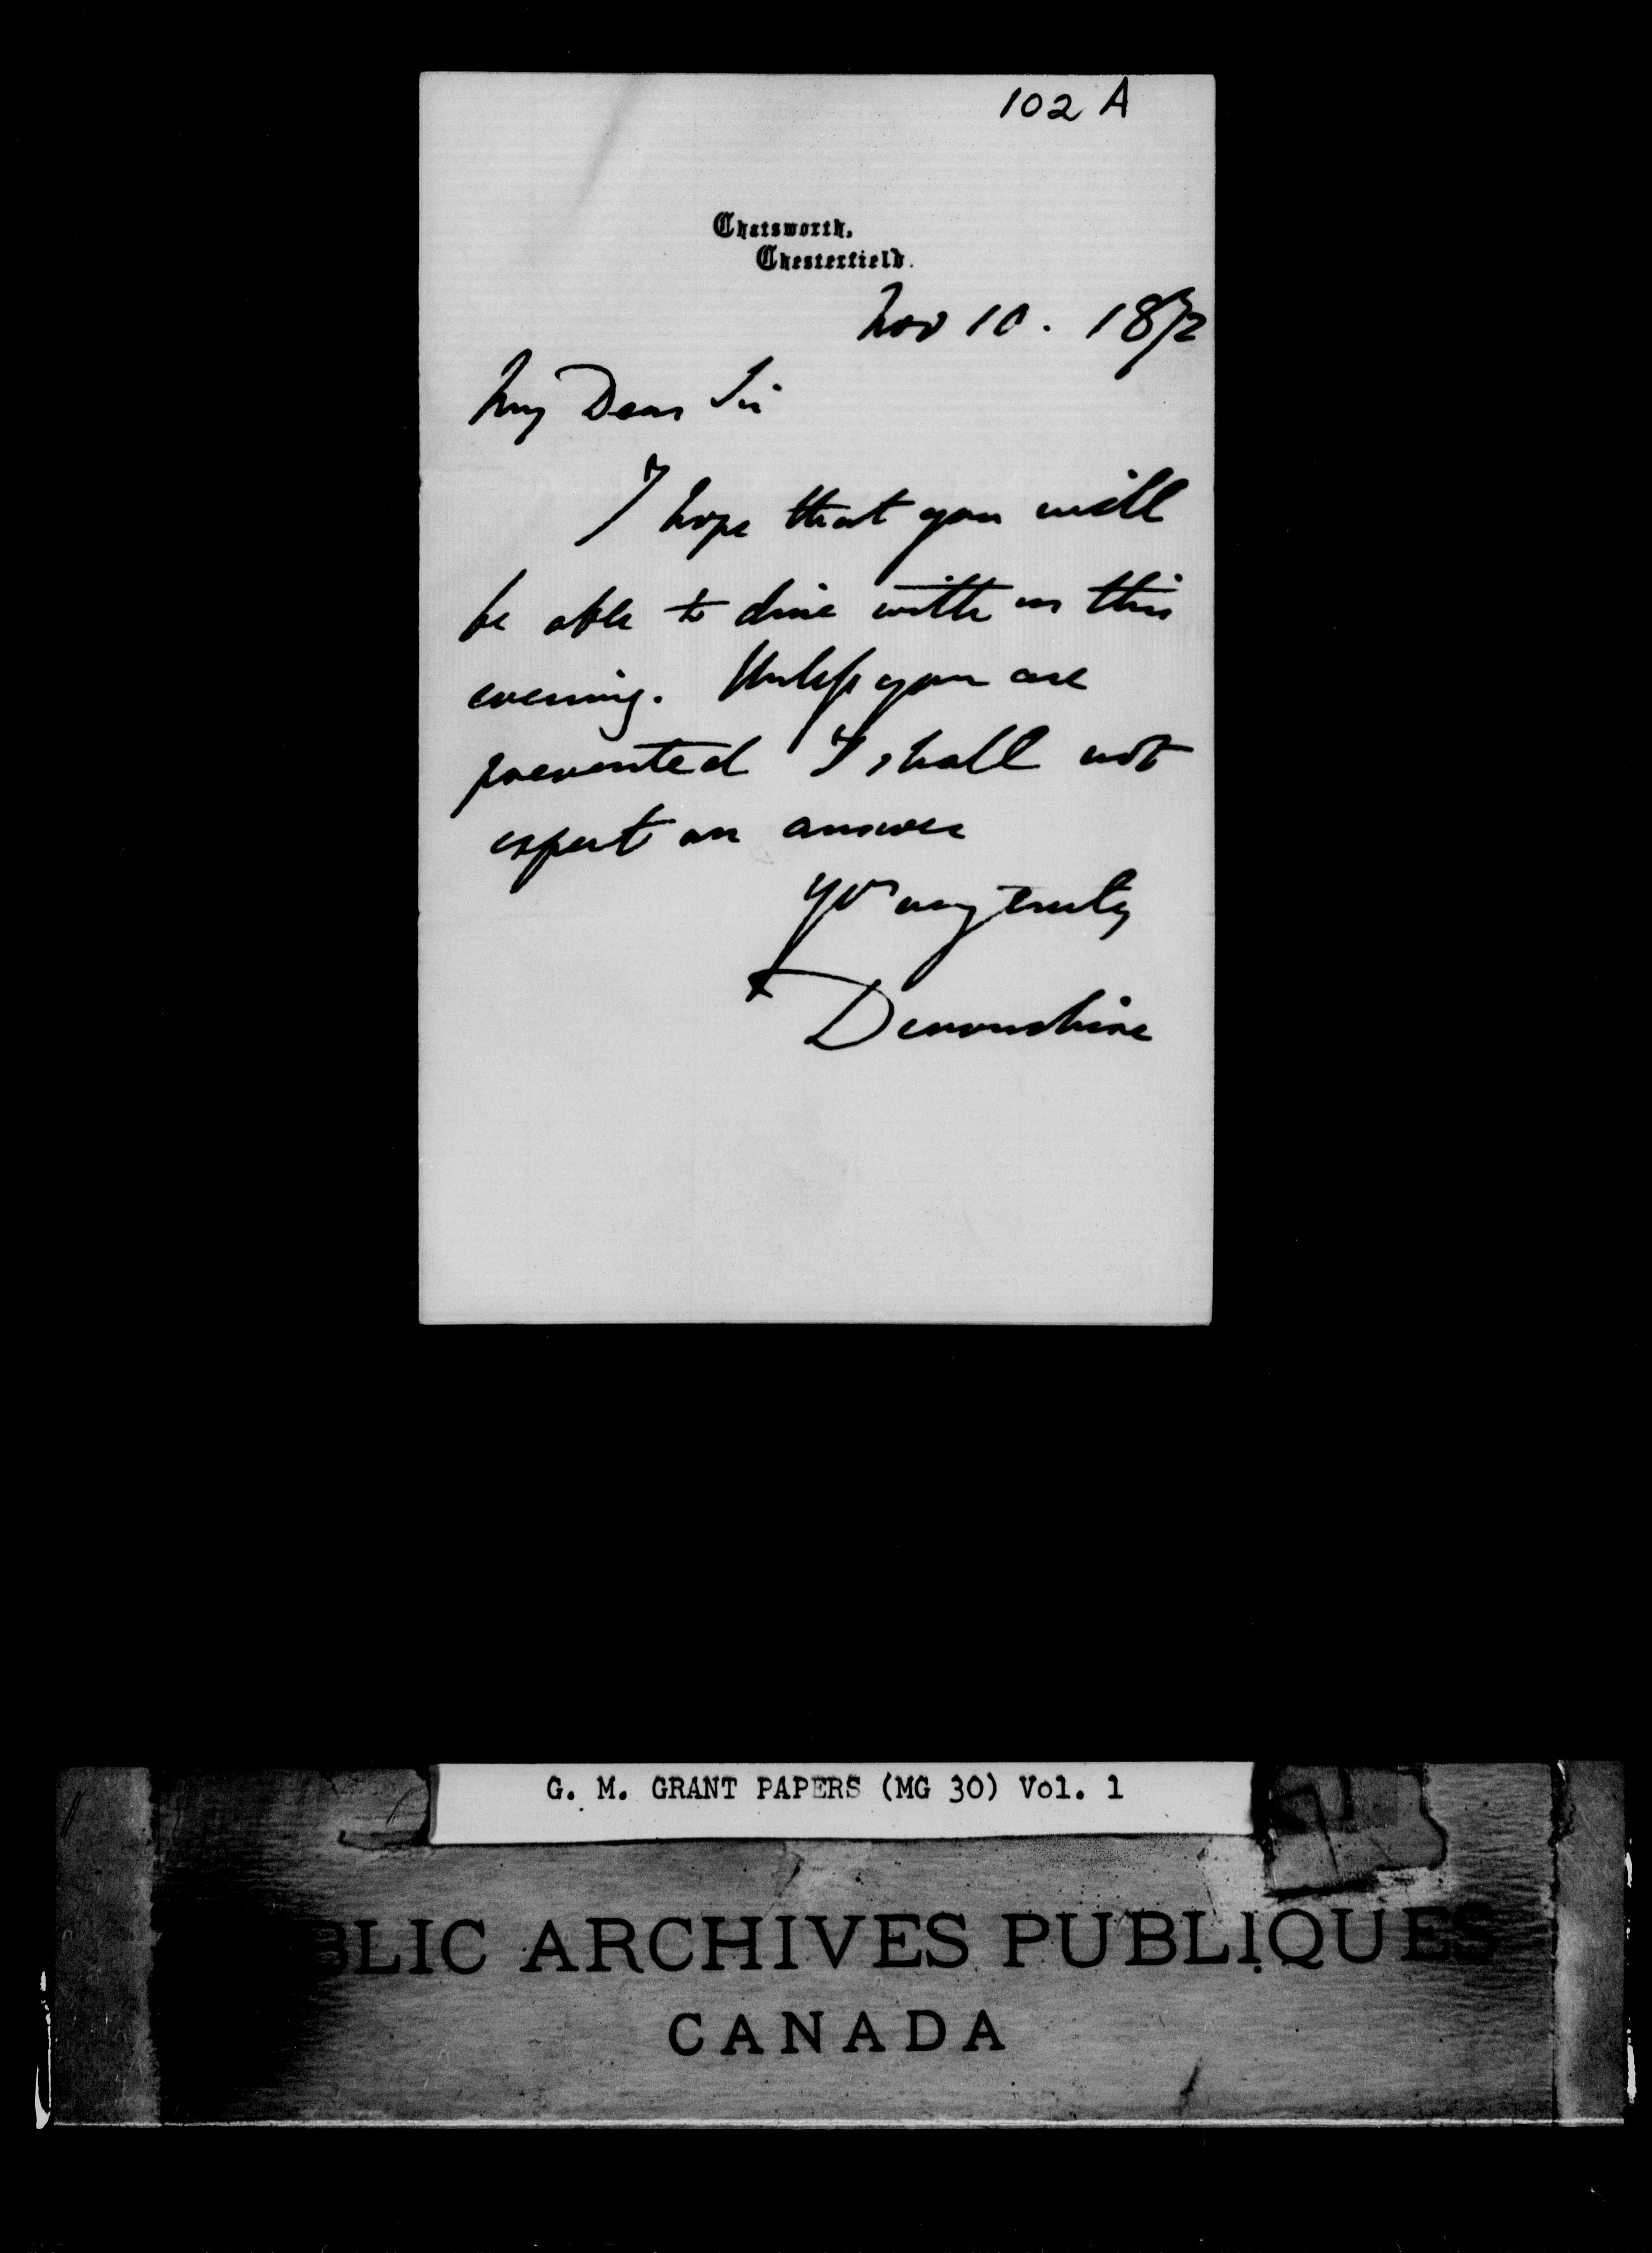 102 A
Chatsworth,
Chesterfield.
Nov 10. 1872
My Dear Sir
I hope that you will
be able to dine with us this
evening. Unless you are
prevented I shall not
expect an answer
Yrs very truly
Devonshire
G. M. GRANT PAPERS (MG 30) Vol. 1
BLIC ARCHIVES PUBLIQUES
CANADA